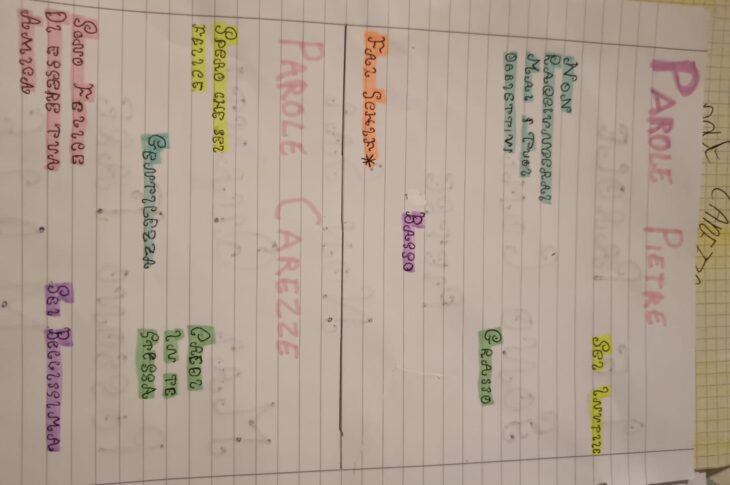 PAROLE PIETRE
SEI INUTILE
NON
RAGGIUNGERAI
MAI I TUOI
OBIETTIVI
GRASSO
BASSO
FAI SCHIF*
PAROLE CAREZZE
SPERO CHE SEI
FELICE
CREDI
IN TE
STESSA
GENTILEZZA
SONO FELICE
DI ESSERE TUA
AMICA
SEI BELLISSIMA